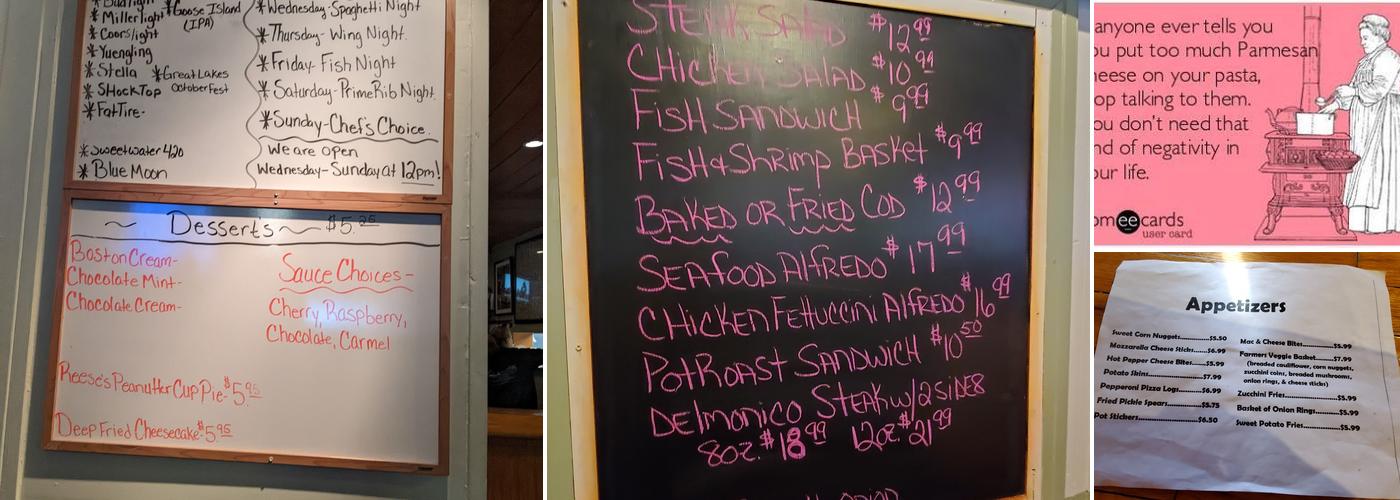 * Bud light
* Miller light
* Goose Island
(IPA)
* Coors light
* Yuengling
* Stella
* Great Lakes
OctoberFest
* SHockTop
* FatTire-
* Sweetwater 420
* Blue Moon
* Wednesday-Spaghetti Night
* Thursday-Wing Night.
* Friday-Fish Night
* Saturday-PrimeRib Night.
* Sunday-Chef's Choice.
We are open
Wednesday-Sunday at 12pm!
Desserts $5.25
Boston Cream-
Chocolate Mint-
Chocolate Cream-
Sauce Choices-
Cherry, Raspberry,
Chocolate, Carmel
Reese's Peanutter Cup Pie-$5.95
Deep Fried Cheesecake-$5.95
STEAK SALAD $12.99
CHICKEN SALAD $10.99
FISH SANDWICH $9.99
FisH & SHrimp BASKet $9.99
BAKED OR FRIED COD $12.99
SEAFOOD AlFREDO $17.99
CHICKEN FETTUCCINI AlFREDO $16.99
POT ROAST SANDWICH $10.50
DElmonico STEAK w/2 SIDES
8oz. $18.99 12oz. $21.99
anyone ever tells you
ou put too much Parmesan
heese on your pasta,
op talking to them.
ou don't need that
nd of negativity in
our life.
omeecards
user card
Appetizers
Sweet Corn Nuggets...............$5.50
Mozzarella Cheese Sticks...$6.99
Hot Pepper Cheese Bites.....$5.99
Potato Skins.........................$7.99
Pepperoni Pizza Logs............$6.99
Fried Pickle Spears...............$5.75
Pot Stickers..........................$6.50
Mac & Cheese Bites...............$5.99
Farmers Veggie Basket...........$7.99
(breaded cauliflower, corn nuggets,
zucchini coins, breaded mushrooms,
onion rings, & cheese sticks)
Zucchini Fries........................$5.99
Basket of Onion Rings...........$5.99
Sweet Potato Fries................$5.99